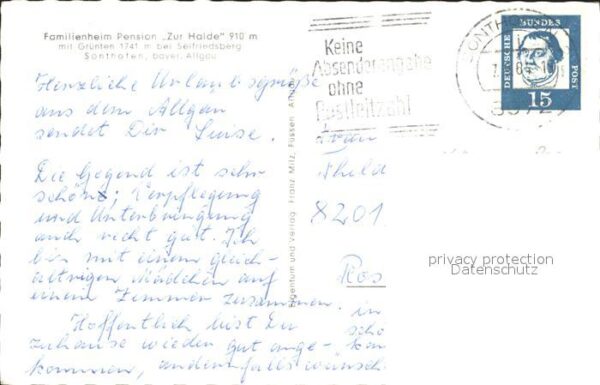 Familienheim Pension „Zur Halde" 910 m
mit Grünten 1741 m bei Seifriedsberg
Sonthofen, bayer. Allgäu
Herzliche Urlaubsgrüße
aus dem Allgäu
sendet Dir Suse.
Die Gegend ist sehr
schön; Verpflegung
und Unterbringung
auch recht gut. Ich
bin mit einem gleich-
altrigen Mädchen auf
einem Zimmer zusammen.
Hoffentlich bist Du
zuhause wieder gut ange-
kommen, andernfalls wünsch
in
schö
kon
Eigentum und Verlag Franz Milz, Füssen
Keine
Absenderangabe
ohne
Postleitzahl
SONTHO
DEUTSCHE BUNDES POST
15
Frau
8201
Ros
privacy protection
Datenschutz